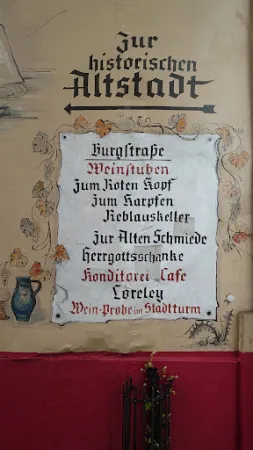 Zur
historischen
Altstadt
Burgstraße
Weinstuben
Zum Roten Kopf
Zum Karpfen
Reblauskeller
Zur Alten Schmiede
Herrgottsschänke
Konditorei Cafe
Loreley
Wein-Probe im Stadtturm